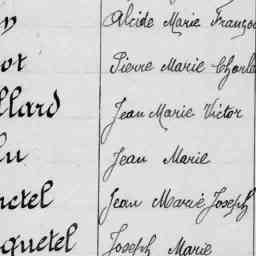 y Alcide Marie François
ot Pierre Marie Charles
llard Jean Marie Victor
lu Jean Marie
netel Jean Marie Joseph
quetel Joseph Marie